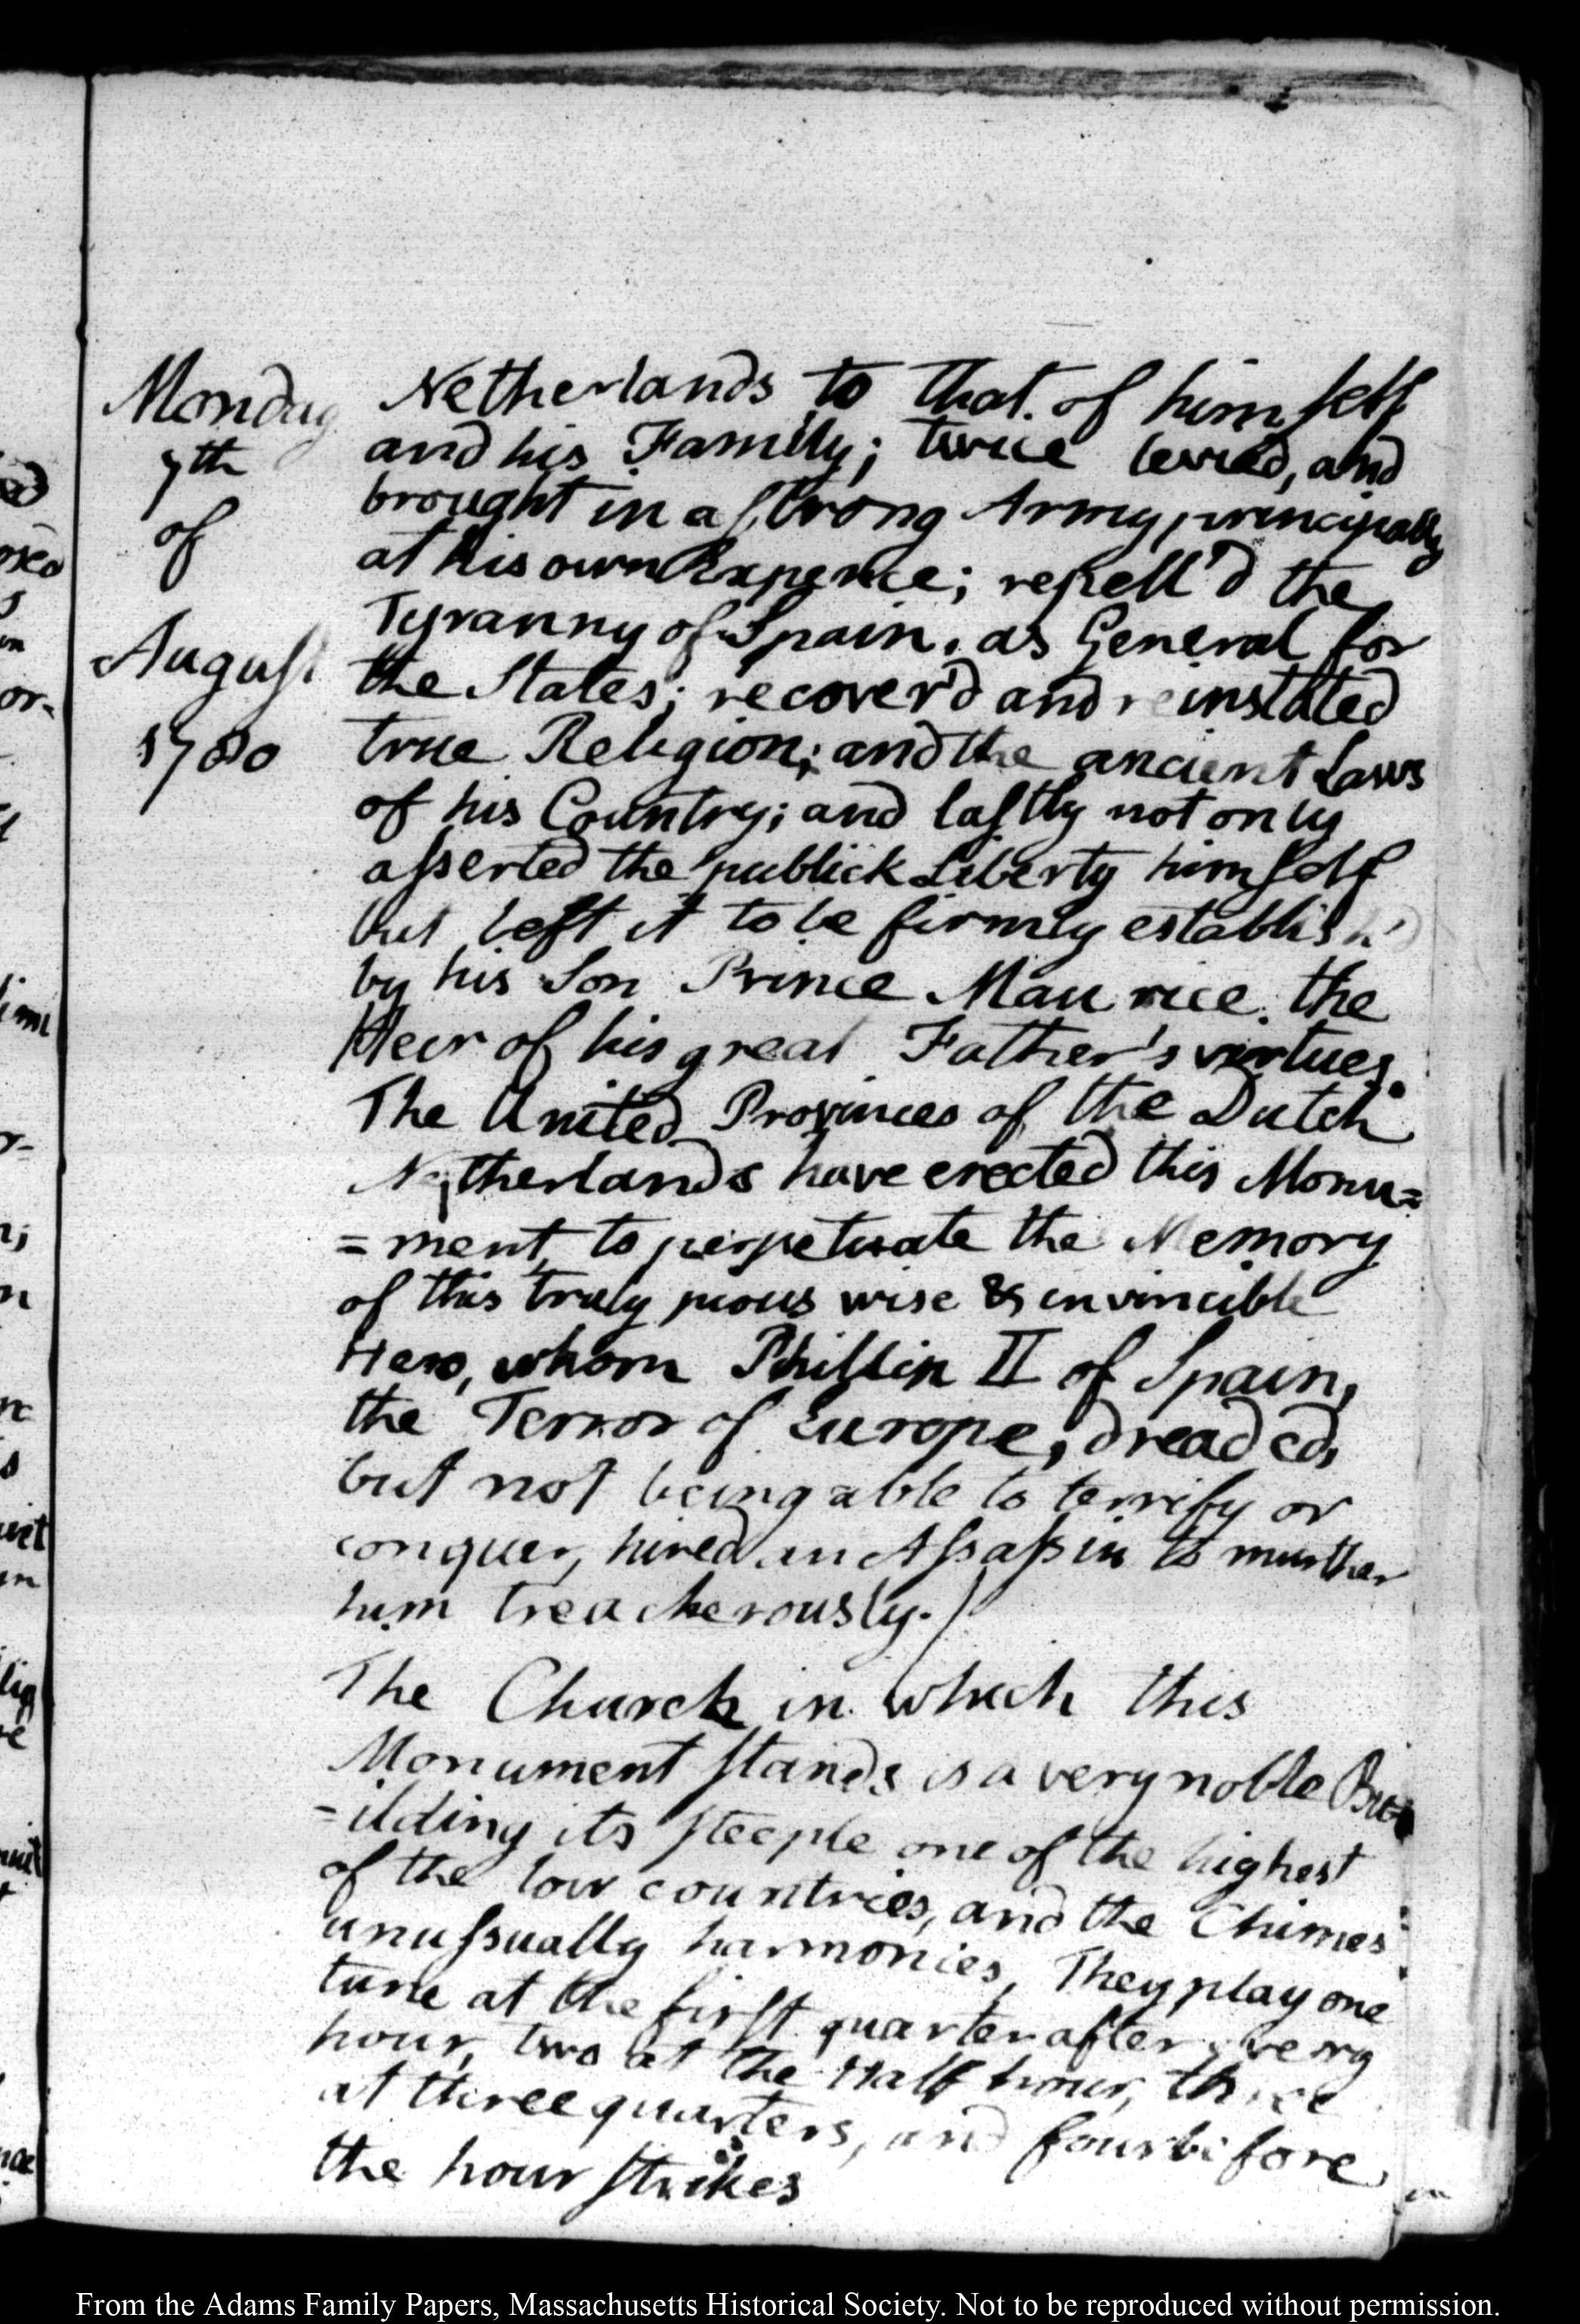 Monday
7th
of
August
1780
Netherlands to that of himself
and his Family; twice levied, and
brought in a strong Army, principally
at his own Expence; repell'd the
Tyranny of Spain, as General for
the States; recover'd and reinstated
true Religion; and the ancient Laws
of his Country; and lastly not only
asserted the publick Liberty himself
but left it to be firmly establish'd
by his Son Prince Maurice, the
Heir of his great Father's virtues.
The United Provinces of the Dutch
Netherlands have erected this Monu=
=ment, to perpetuate the Memory
of this truly pious wise & invincible
Hero, whom Phillip II of Spain,
the Terror of Europe, dreaded,
but not being able to terrify or
conquer, hired an Assassin to murther
him treacherously.)
The Church in which this
Monument stands is a very noble Bu=
=ilding its steeple one of the highest
of the low countries, and the Chimes
unussually harmonies, They play one
tune at the first quarter after every
hour, two at the Half hour, three
at three quarters, and four before
the hour strikes
From the Adams Family Papers, Massachusetts Historical Society. Not to be reproduced without permission.